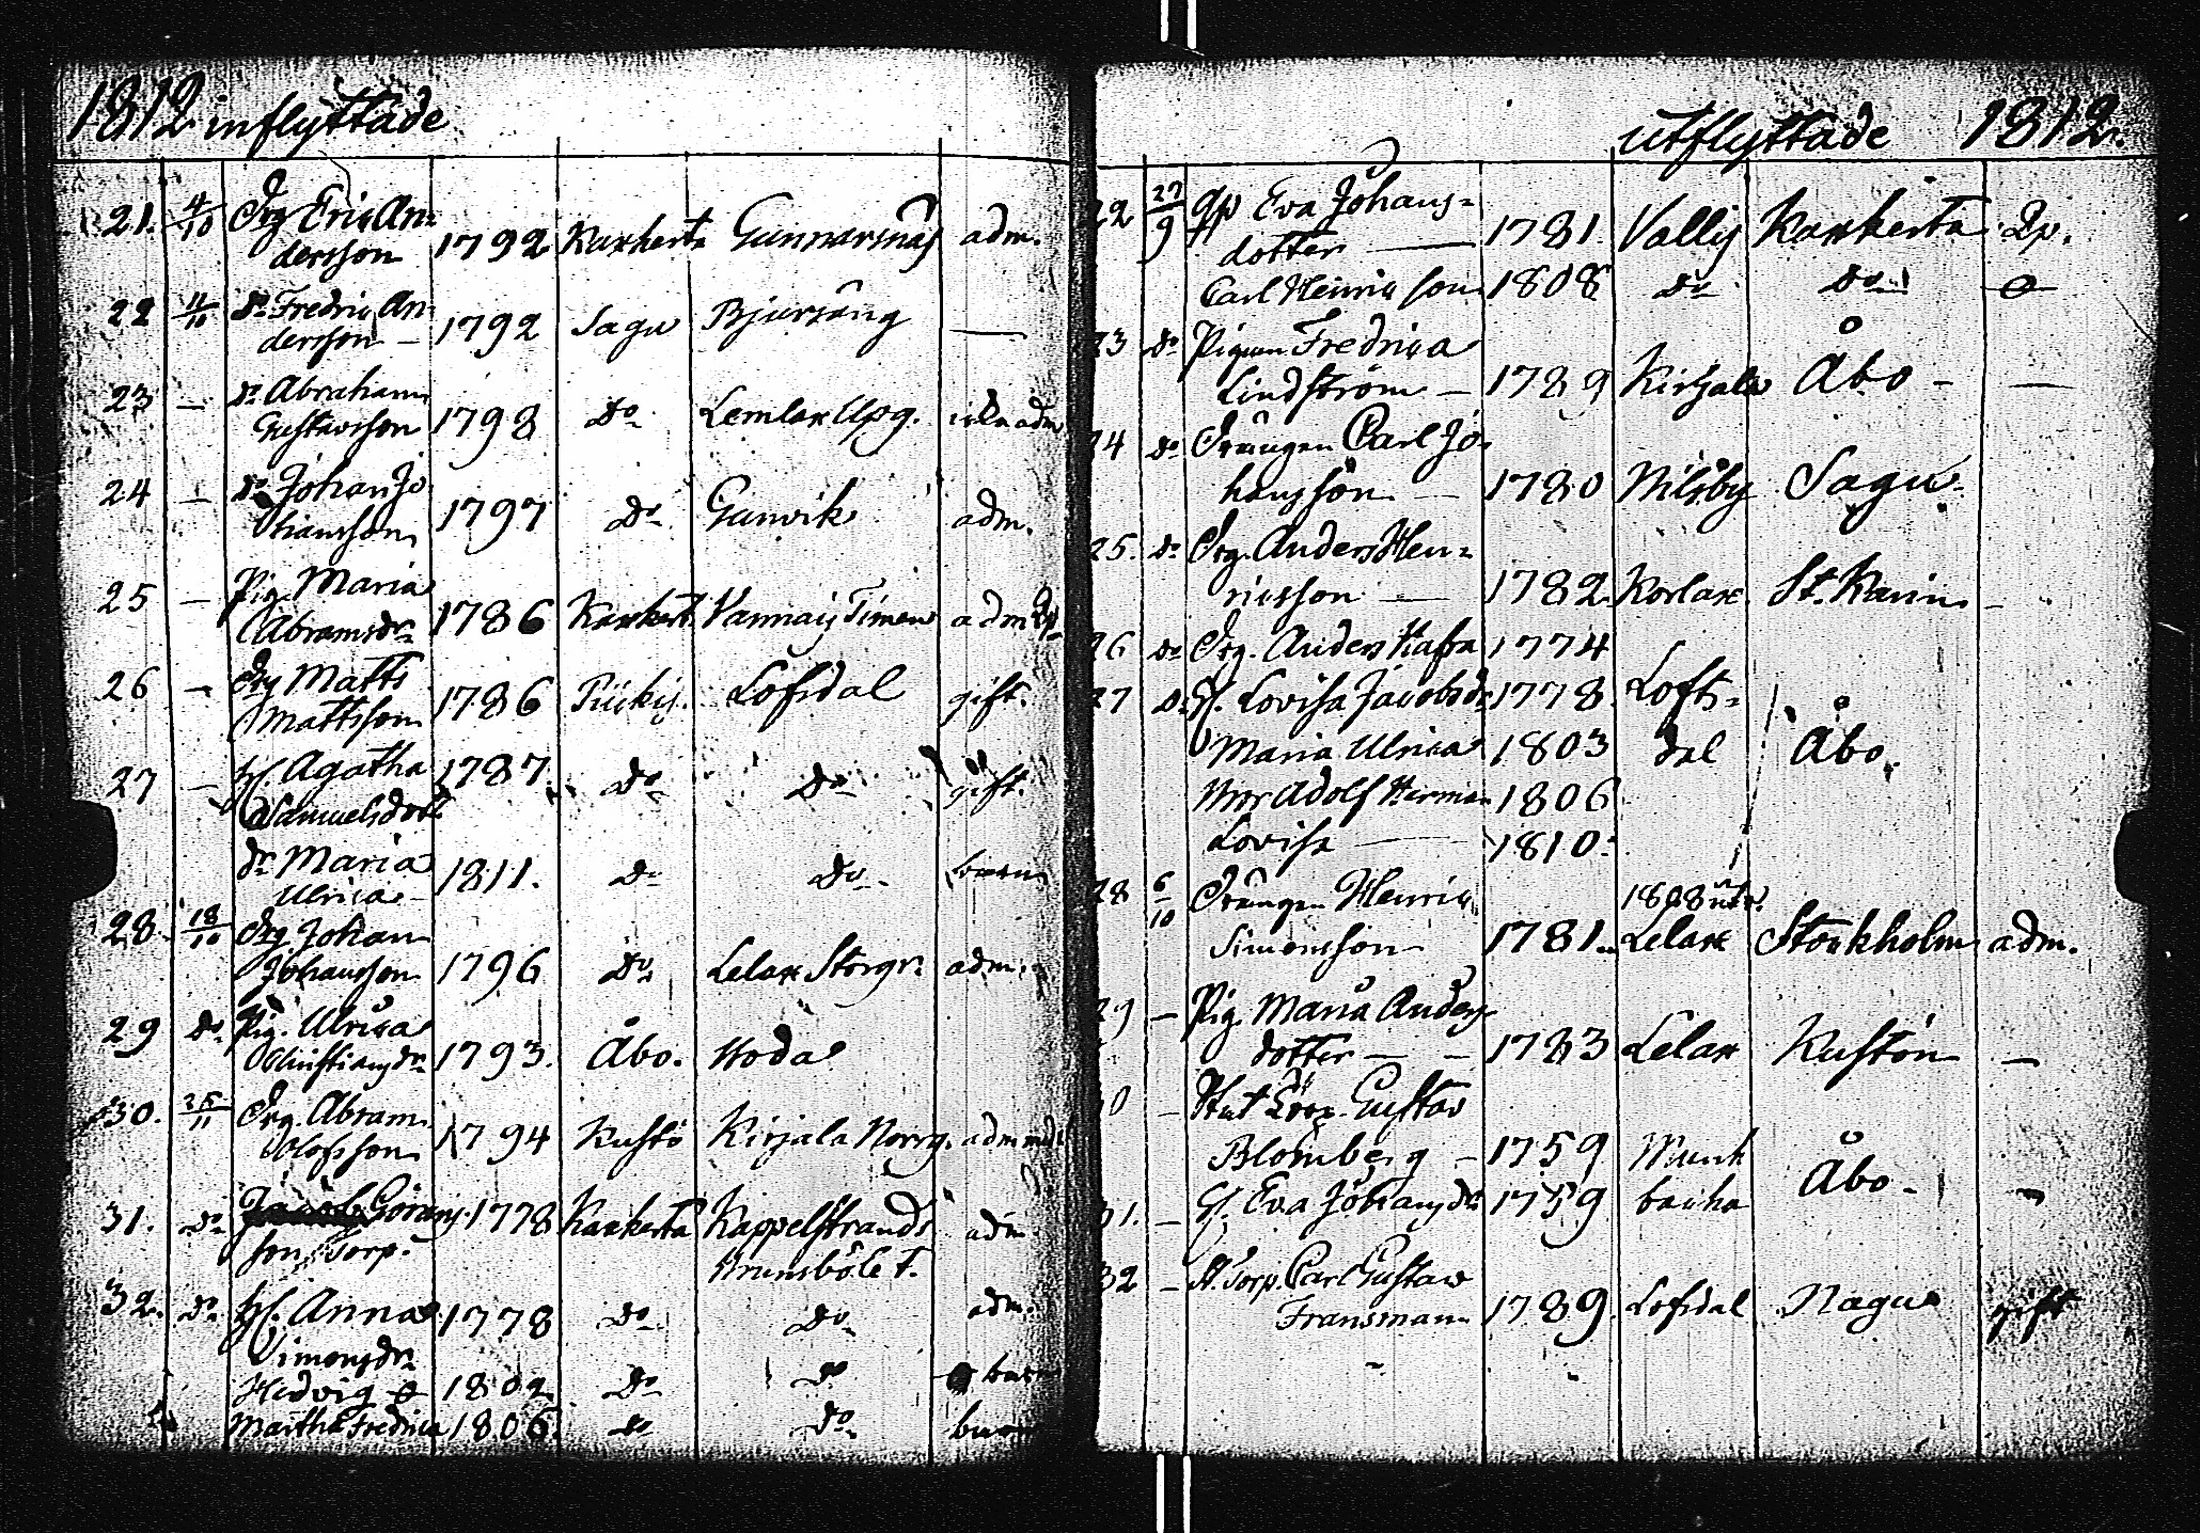 1812 inflyttade
21. 4/10 Drg Eric An=
dersson 1792 Karkerta Gunnarsnäs adm.
22 11/10 Do Fredric An=
dersson — 1792 Sagu Bjursäng —
23 — Do Abraham
Gustavsson 1798 Do Lemlax Upg. icke adm
24 — Do Johan Jo
hansson 1797 Do Gunvik adm.
25 — Pig. Maria
Abramsdr 1786 Karkert. Vannais Timen adm
26 — Drg Matts
Mattsson 1786 Lofsdal gift.
27 — H. Agatha 1787. Do Do gift.
Samuelsdott
dr Maria 1811. Do Do barn
Ulrica —
28 18/10 Drg Johan
Johansson 1796 Do Lelax Storgr. adm.
29 do Pig. Ulrica
Christiansdr 1793. Åbo. Hoda
30. 25/11 Drg. Abram
Olofsson 1794 Kustö Kirjala Norrg. adm
31. Do Jacob Görans 1778 Karkerta Kappelstrands adm.
son Torp.
Brunsböle t.
32. Do H. Anna 1778 Do Do adm.
Simonsdr
Hedvig 1802 Do Do barn
Martha Fredrica 1806. do Do barn
utflyttade 1812.
22 27/9 Eva Johans=
dotter — 1781. Vallis Karkerta
Carl Henric son 1808 Do Do
23 do Pigan Fredrica
Lindström — 1789 Kirjala Åbo — —
24 do Drängen Carl Jo
hansson — 1780 Nilsby Sagu
25. do Drg. Anders Hen=
ricsson — 1782. Korlax St. Karins —
26 do Drg. Anders Hafra 1774
27 do H. Lovisa Jacobsdr 1778. Lofts=
Maria Ulrica 1803 dal Åbo.
Adolf Herman 1806
Lovisa — 1810.
28 6/10 Drängen Henric 1808 utr.
Simonsson 1781. Lelax Stockholm adm.
29 — Pig. Maria Anders
dotter — — 1783 Lelax Kustön —
30 — Gustav
Blomberg — 1759 Munk
31. — H. Eva Johansdr 1759 backa Åbo.
32 — St. Torp. Carl Gustaw
Fransman 1789. Lofsdal Nagu gift